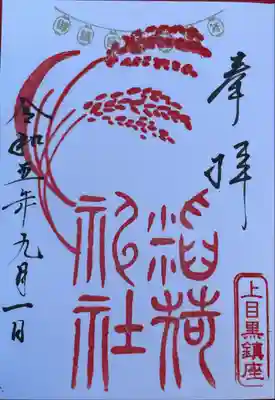 奉拝
稲荷
神社
上目黒鎮座
令和五年九月一日